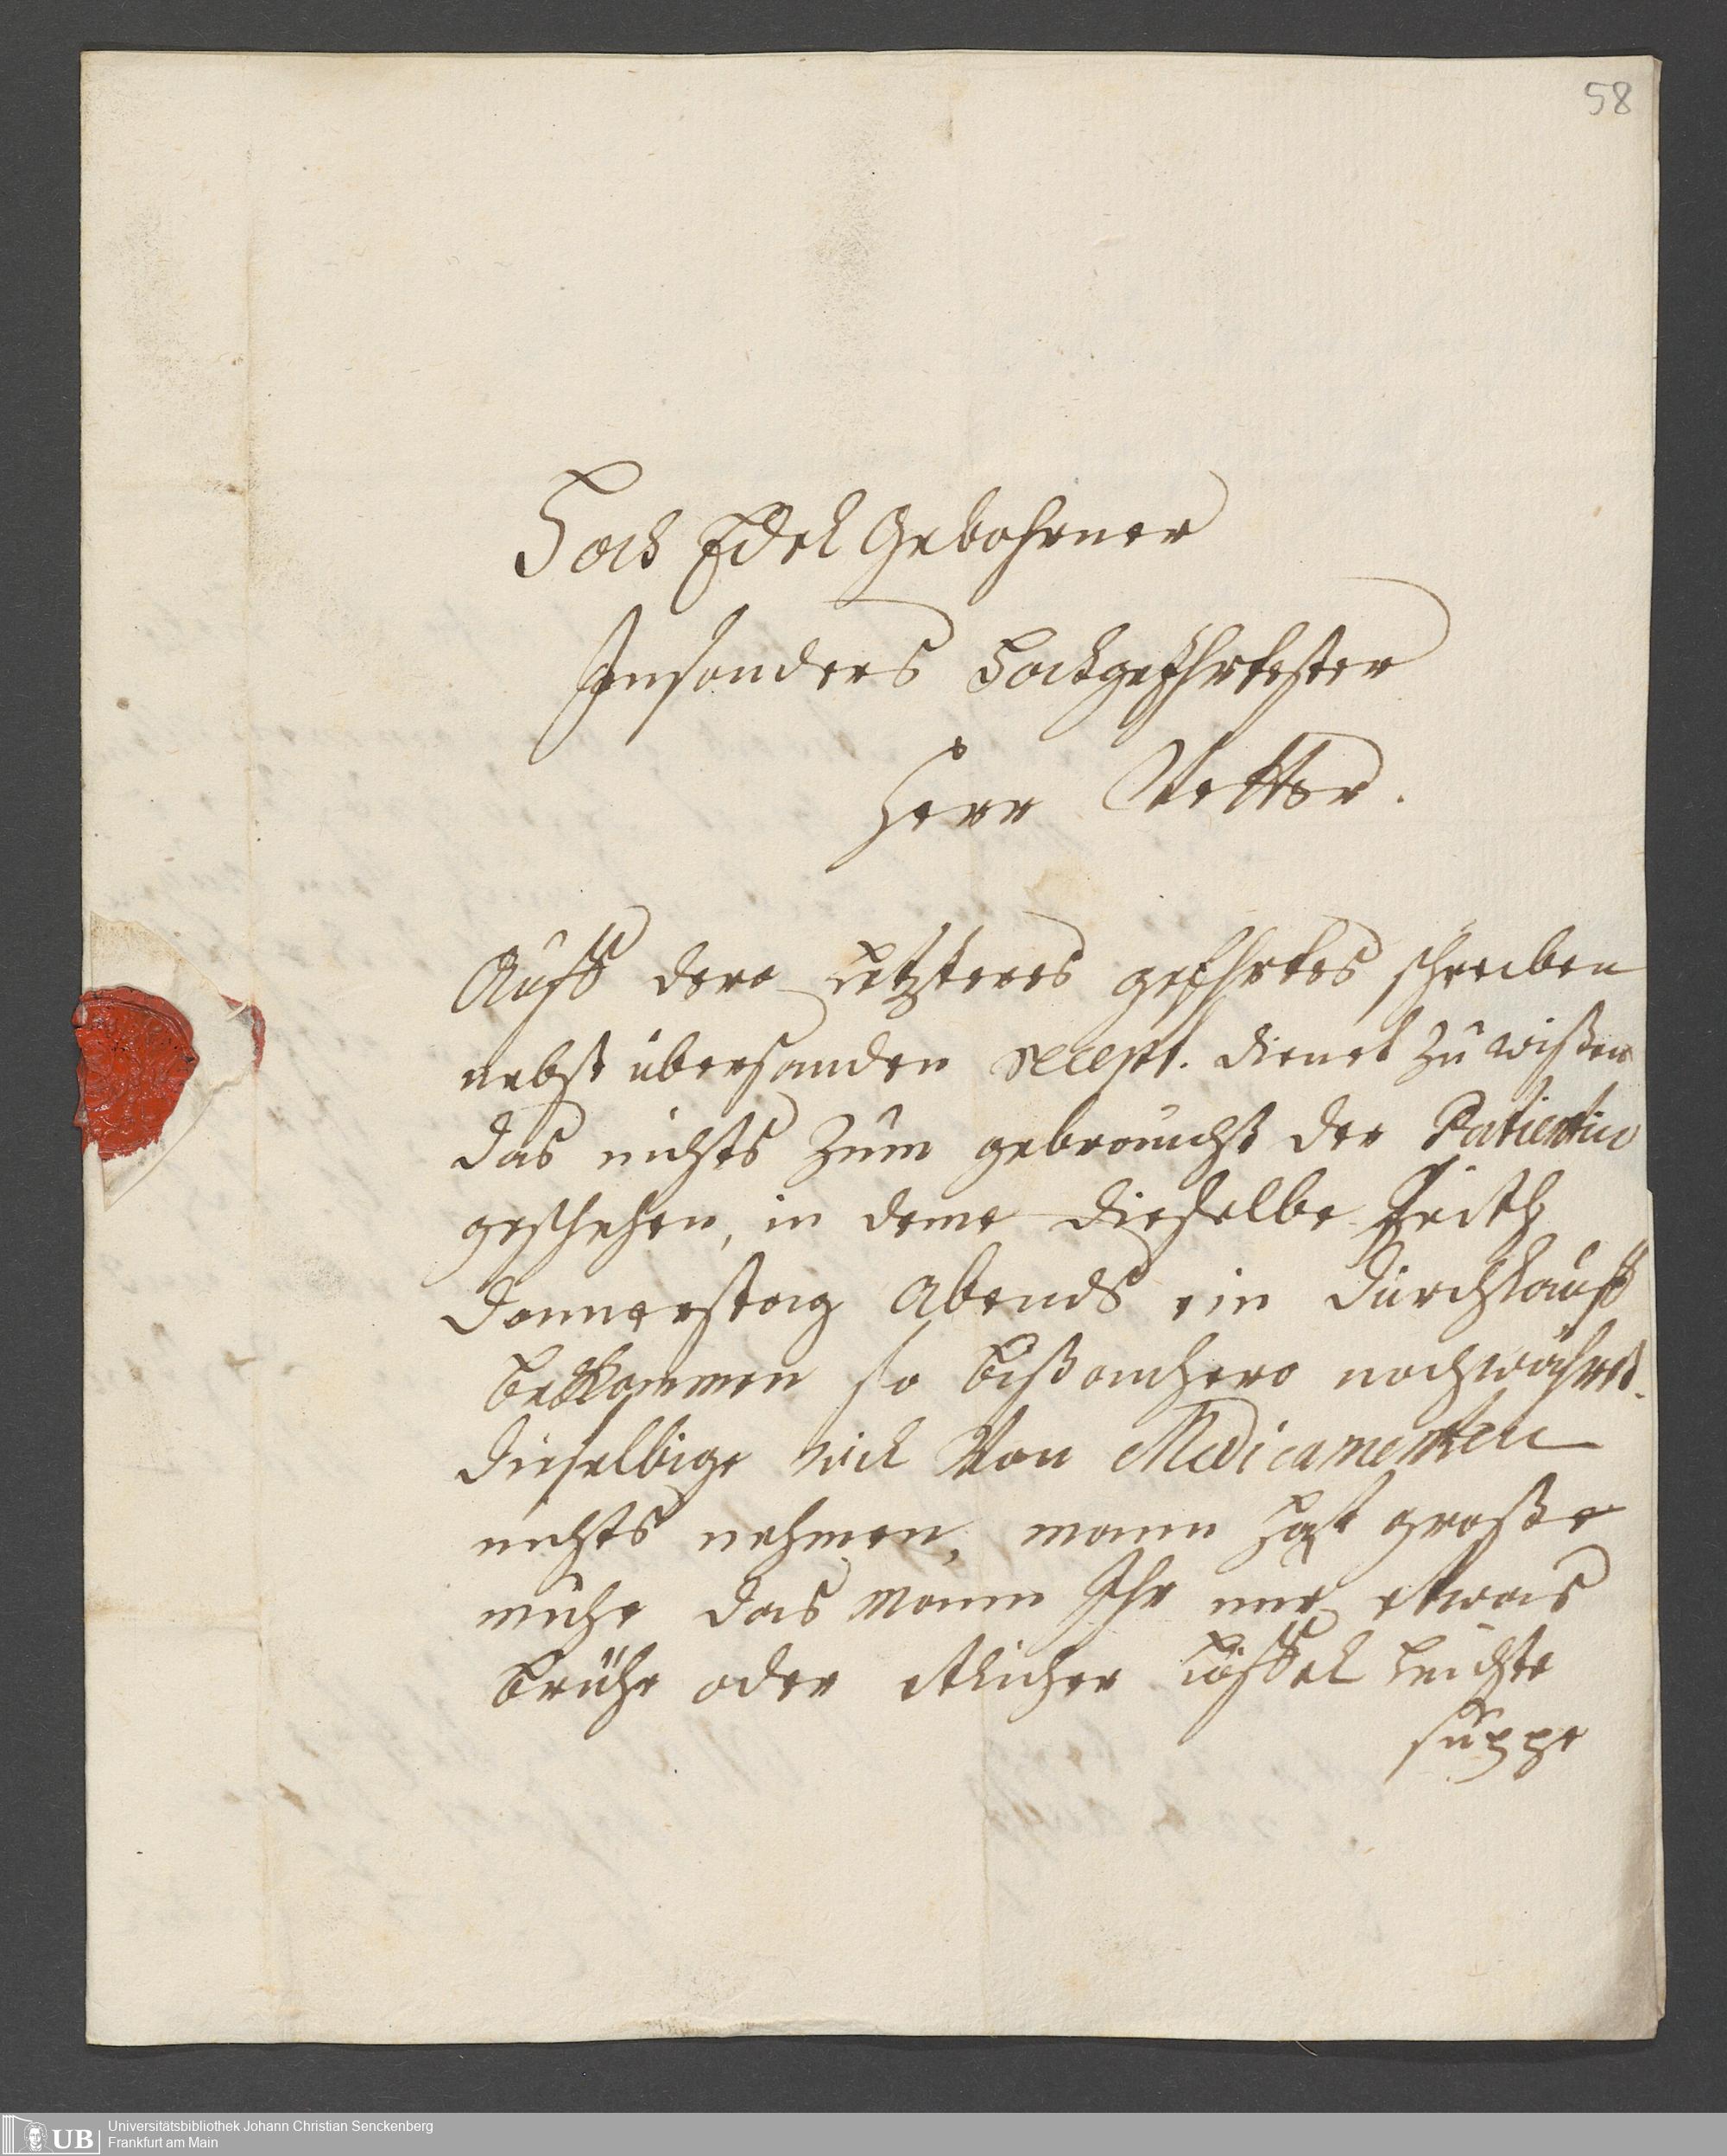 58
Hoch Edel Gebohrner
Insonders Hochgeehrtester
Herr Vetter.
Auff dero letzteres geehrtes schreiben
nebst übersanden recept. dienet zu wißen
das nichts zum gebraucht der Patientin
geschehen, in deme dieselbe seith
Donnerstag Abends ein durchlauff
bekommen so bißanhero noch währet.
dieselbige will Von Medicamenten
nichts nehmen, mann hat große
mühe das mann Ihr nur etwas
brühe oder etlicher löffel leichte
suppe
UB
Universitätsbibliothek Johann Christian Senckenberg
Frankfurt am Main